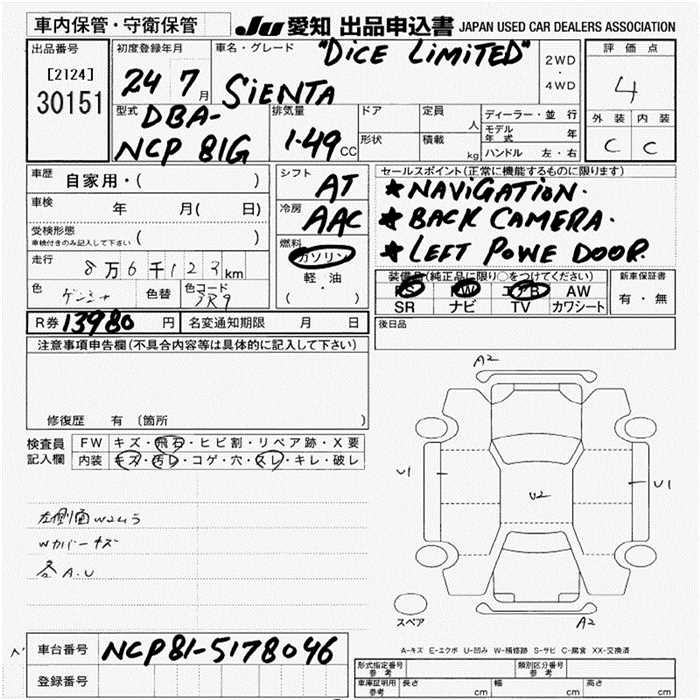 車内保管・守衛保管
JU 愛知 出品申込書 JAPAN USED CAR DEALERS ASSOCIATION
出品番号
[2124]
30151
初度登録年月
24 7月
車名・グレード
"DICE LIMITED"
SIENTA
2WD
・
4WD
評価点
4
外装 内装
C C
型式
DBA-
NCP 81G
排気量
1.49 CC
ドア
形状
定員 人
積載 kg
ディーラー・並行
モデル年式 年
ハンドル 左・右
車歴 自家用・( )
車検 年 月( 日)
受検形態
車検付きのみ記入して下さい ( )
走行 8万6千123km
色 色替 色コード
シフト AT
冷房 AAC
燃料
ガソリン
軽・油
( ・ )
セールスポイント(正常に機能するものに限ります)
★NAVIGATION.
★BACK CAMERA.
★LEFT POWE DOOR.
装備品(純正品に限り○をつけてください)
PS PW エアB AW
SR ナビ TV カワシート
新車保証書
有・無
R券 13980 円
名変通知期限 月 日
後日品
注意事項申告欄(不具合内容等は具体的に記入して下さい)
修復歴 有 〔箇所 〕
検査員
記入欄
FW キズ・飛石・ヒビ割・リペア跡・X要
内装 キズ・汚レ・コゲ・穴・スレ・キレ・破レ
Wカバーキズ
各A.U
A2
U1
U2
U1
A2
スペア
A-キズ E-エクボ U-凹み W-補修跡 S-サビ C-腐食 XX-交換済
車台番号 NCP81-5178046
登録番号
形式指定番号
参考
類別区分番号
参考
車庫証明用
参考
長さ cm
幅 cm
高さ cm